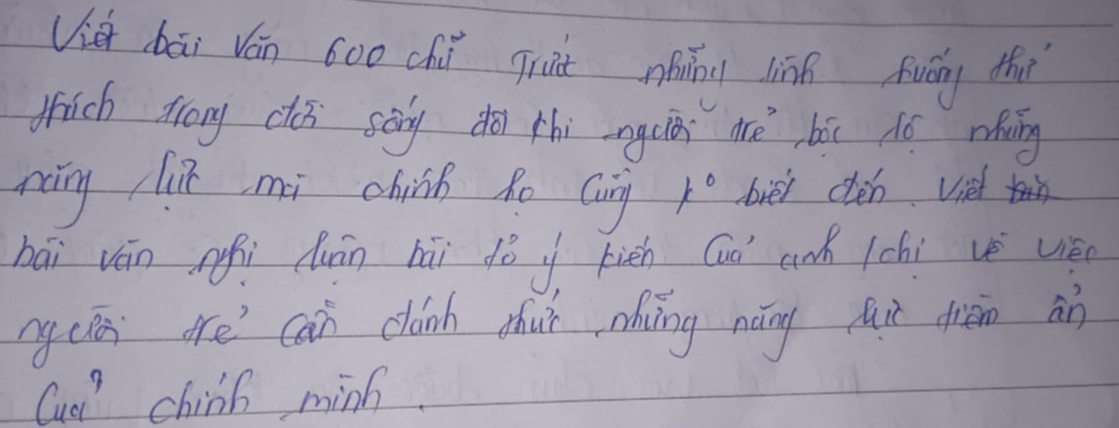 Viết bài văn 600 chữ Trước những tình huống thử
thách trong đời sống đôi khi người trẻ bộc lộ những
năng lực mà chính họ cũng k° biết đến. Viết bài
bài văn nghị luận bài tỏ ý kiến của anh / chị về việc
người trẻ cần đánh thức những năng lực tiềm ẩn
của chính mình.